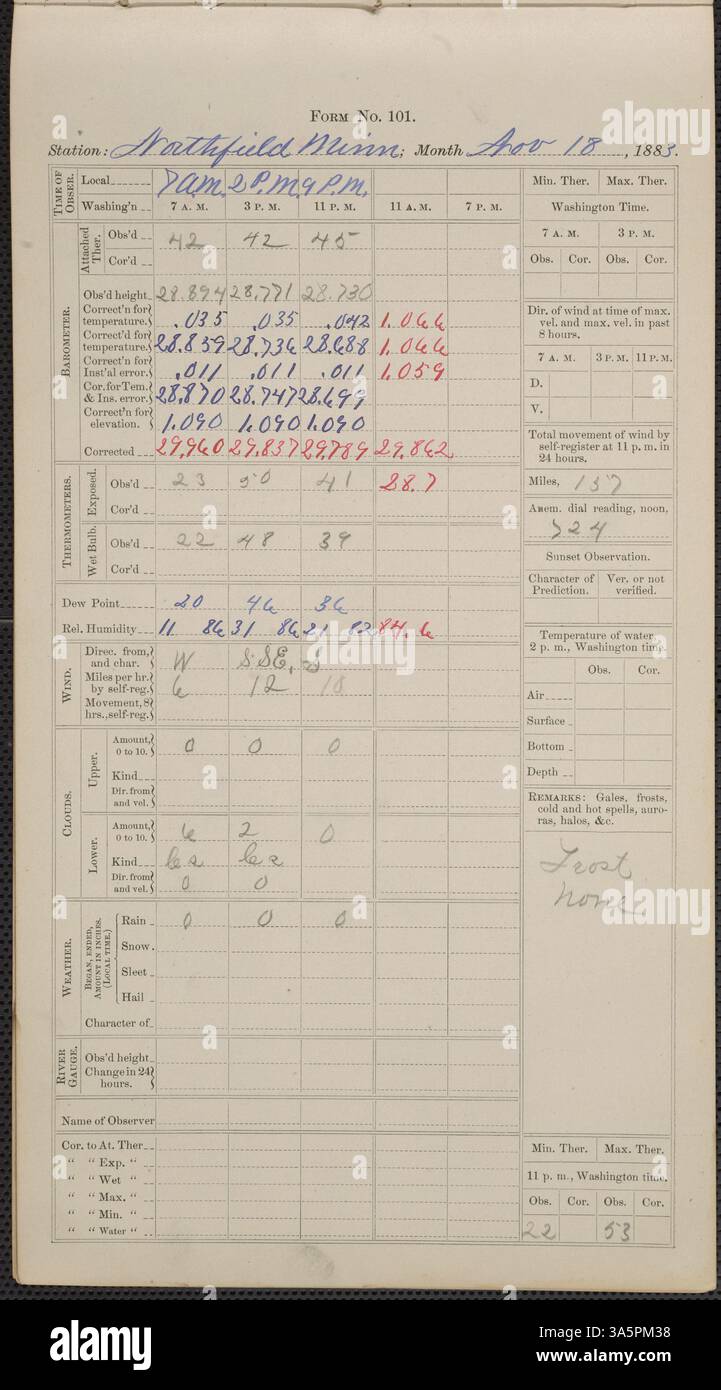 FORM No. 101.
Station: Northfield Minn; Month Nov 18, 1883.
TIME OF OBSER.
Local 7 A.M. 2 P.M. 9 P.M.
Washing'n 7 A. M. 3 P. M. 11 P. M. 11 A. M. 7 P. M.
BAROMETER.
Attached Ther.
Obs'd 42 42 45
Cor'd
Obs'd height 28.894 28.771 28.730
Correct'n for temperature. .035 .035 .042 1.066
Correct'd for temperature. 28.859 28.736 28.688 1.066
Correct'n for Inst'al error. .011 .011 .011 1.059
Cor. for Tem. & Ins. error. 28.870 28.747 28.699
Correct'n for elevation. 1.090 1.090 1.090
Corrected 29.960 29.837 29.789 29.862
THERMOMETERS.
Exposed.
Obs'd 23 50 41 28.7
Cor'd
Wet Bulb.
Obs'd 22 48 39
Cor'd
Dew Point 20 46 36
Rel. Humidity 11 86 31 86 21 82 84.6
WIND.
Direc. from, and char. W SSE, S
Miles per hr. by self-reg. 6 12 10
Movement, 8 hrs., self-reg.
CLOUDS.
Upper.
Amount, 0 to 10. 0 0 0
Kind
Dir. from and vel.
Lower.
Amount, 0 to 10. 6 2 0
Kind
Dir. from and vel. 0 0
WEATHER.
BEGAN, ENDED, AMOUNT IN INCHES. (LOCAL TIME.)
Rain 0 0 0
Snow.
Sleet
Hail
Character of
RIVER GAUGE.
Obs'd height
Change in 24 hours.
Name of Observer
Cor. to At. Ther
" " Exp. "
" " Wet "
" " Max. "
" " Min. "
" " Water "
Min. Ther. Max. Ther.
Washington Time.
7 A. M. 3 P. M.
Obs. Cor. Obs. Cor.
Dir. of wind at time of max. vel. and max. vel. in past 8 hours.
7 A. M. 3 P. M. 11 P. M.
D.
V.
Total movement of wind by self-register at 11 p. m. in 24 hours.
Miles, 157
Anem. dial reading, noon,
724
Sunset Observation.
Character of Prediction. Ver. or not verified.
Temperature of water, 2 p. m., Washington time.
Obs. Cor.
Air
Surface
Bottom
Depth
REMARKS: Gales, frosts, cold and hot spells, auroras, halos, &c.
Frost
none
Min. Ther. Max. Ther.
11 p. m., Washington time.
Obs. Cor. Obs. Cor.
22 53
alamy
Image ID: 3A5PM38
www.alamy.com